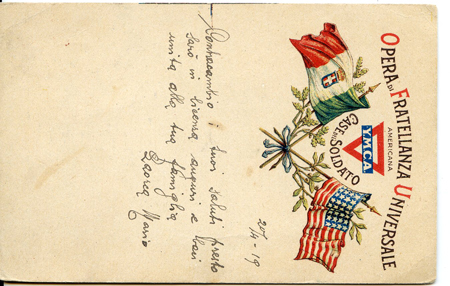 OPERA DI FRATELLANZA UNIVERSALE
AMERICANA
YMCA
CASE DEL SOLDATO
20/4-19
Contracambio i tuoi saluti presto
sarò in licenza auguri e baci
unita alla tua famiglia
Mario